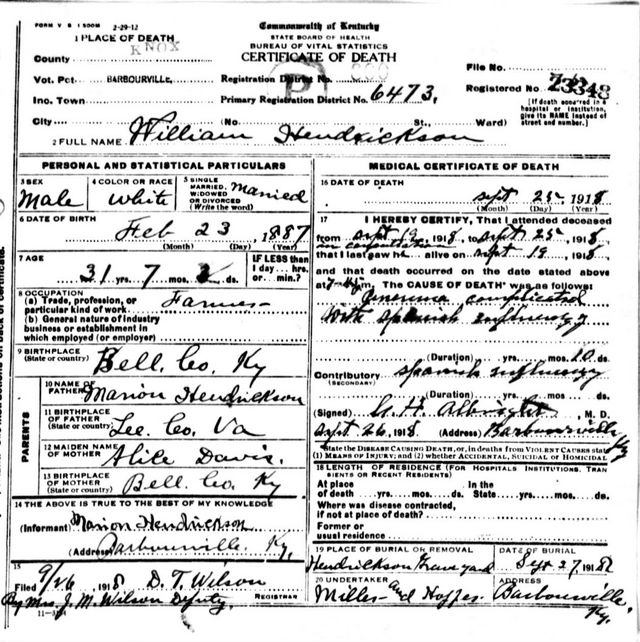 FORM V S 1 500M 2-29-12
Commonwealth of Kentucky
STATE BOARD OF HEALTH
BUREAU OF VITAL STATISTICS
CERTIFICATE OF DEATH
1 PLACE OF DEATH
County KNOX
Vot. Pct BARBOURVILLE,
Inc. Town
City (No. St., Ward)
Registration District No.
Primary Registration District No. 6473.
File No.
Registered No. 23348
[If death occurred in a
hospital or institution,
give its NAME instead of
street and number.]
2 FULL NAME William Hendrickson
PERSONAL AND STATISTICAL PARTICULARS
3 SEX Male
4 COLOR OR RACE White
5 SINGLE MARRIED, WIDOWED OR DIVORCED (Write the word) Married
6 DATE OF BIRTH Feb 23, 1887
(Month) (Day) (Year)
7 AGE 31 yrs. 7 mos. 2 ds.
IF LESS than 1 day... hrs. or min.?
8 OCCUPATION
(a) Trade, profession, or particular kind of work Farmer
(b) General nature of industry business or establishment in which employed (or employer)
9 BIRTHPLACE (State or country) Bell Co. Ky
PARENTS
10 NAME OF FATHER Marion Hendrickson
11 BIRTHPLACE OF FATHER (State or country) Lee Co. Va
12 MAIDEN NAME OF MOTHER Alice Davis.
13 BIRTHPLACE OF MOTHER (State or country) Bell Co. Ky
14 THE ABOVE IS TRUE TO THE BEST OF MY KNOWLEDGE
(Informant) Marion Hendrickson
(Address) Barbourville. Ky.
15
Filed 9/26 1918 D. T. Wilson
REGISTRAR
By Mrs. J. M. Wilson Deputy.
MEDICAL CERTIFICATE OF DEATH
16 DATE OF DEATH
Sept 25, 1918
(Month) (Day) (Year)
17 I HEREBY CERTIFY, That I attended deceased
from Sept 19, 1918, to Sept 25, 1918,
that I last saw h alive on Sept 19, 1918,
and that death occurred on the date stated above
at m. The CAUSE OF DEATH was as follows:
Pneumonia complicated
with Spanish influenza
(Duration) yrs. mos. 10 ds.
Contributory (SECONDARY) Spanish influenza
(Duration) yrs. mos. ds.
(Signed) Albright, M. D.
Sept 26, 1918 (Address) Barbourville Ky
State the DISEASE CAUSING DEATH, or, in deaths from VIOLENT CAUSES state
(1) MEANS OF INJURY; and (2) whether ACCIDENTAL, SUICIDAL OR HOMICIDAL
18 LENGTH OF RESIDENCE (FOR HOSPITALS INSTITUTIONS, TRANSIENTS OR RECENT RESIDENTS)
At place of death yrs. mos. ds. In the State yrs. mos. ds.
Where was disease contracted, if not at place of death?
Former or usual residence
19 PLACE OF BURIAL OR REMOVAL
Hendrickson Graveyard
DATE OF BURIAL
Sept 27, 1918
20 UNDERTAKER
Miller and Hopper
ADDRESS
Barbourville Ky.